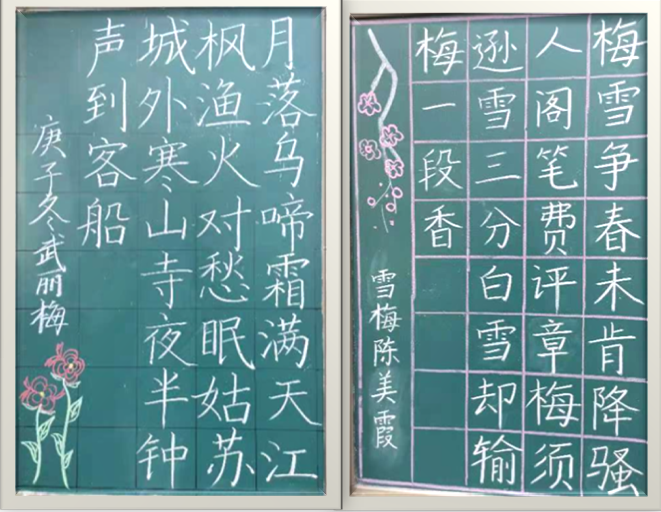 月落乌啼霜满天江
枫渔火对愁眠姑苏
城外寒山寺夜半钟
声到客船
庚子冬武丽梅
梅雪争春未肯降骚
人阁笔费评章梅须
逊雪三分白雪却输
梅一段香
雪梅陈美霞